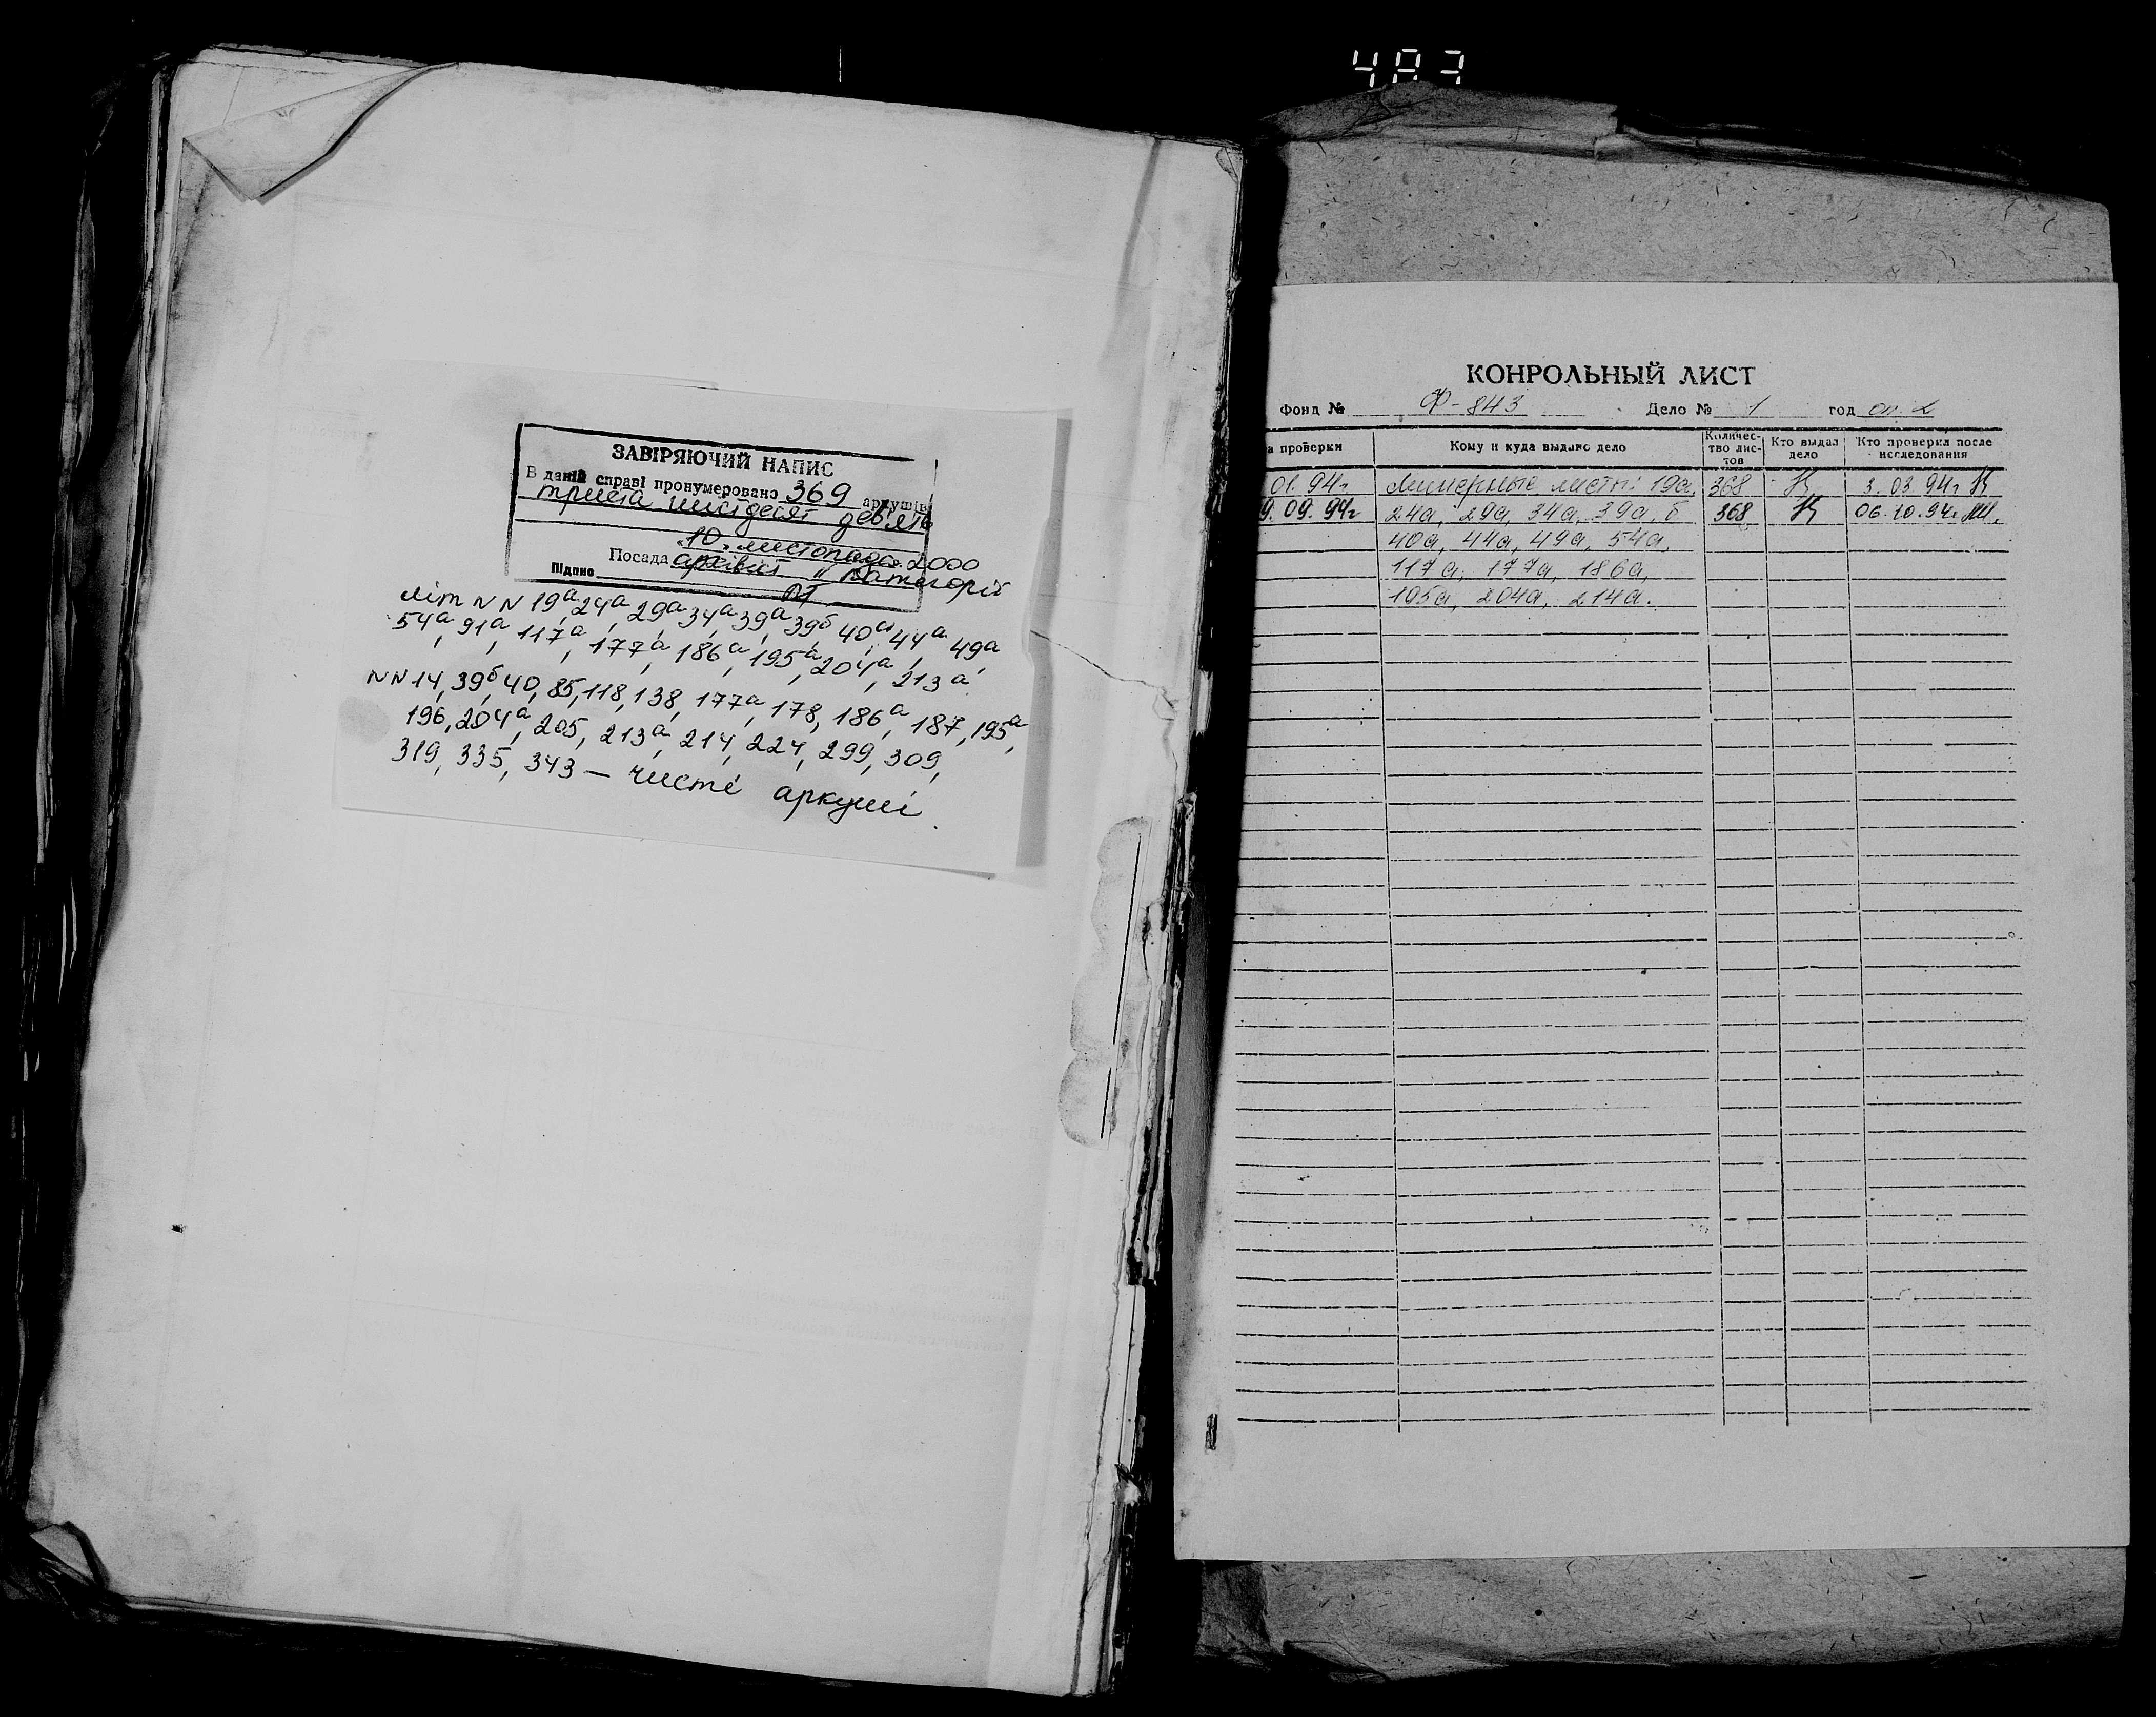 483
ЗАВІРЯЮЧИЙ НАПИС
В даній справі пронумеровано 369 аркушів
триста шістдесят дев'ять
"10" листопада 2000
Посада архівіст II категорії
Підпис
літ NN 19а, 24а, 29а, 34а, 39а, 39б, 40а, 44а, 49а,
54а, 91а, 117а, 177а, 186а, 195а, 204а, 213а.
NN 14, 39б, 40, 85, 118, 138, 177а, 178, 186а, 187, 195а,
196, 204а, 205, 213а, 214, 224, 299, 309,
319, 335, 343 — чисті аркуші.
КОНРОЛЬНЫЙ ЛИСТ
Фонд № Ф-843 Дело № 1 год оп. 2
а проверки Кому и куда выдано дело Количес-тво лис-тов Кто выдал дело Кто проверил после исследования
01.94г Литерные листы: 19а, 368 3.03.94г
9.09.94г 24а, 29а, 34а, 39а, б 368 06.10.94г
40а, 44а, 49а, 54а,
117а, 177а, 186а,
195а, 204а, 214а.